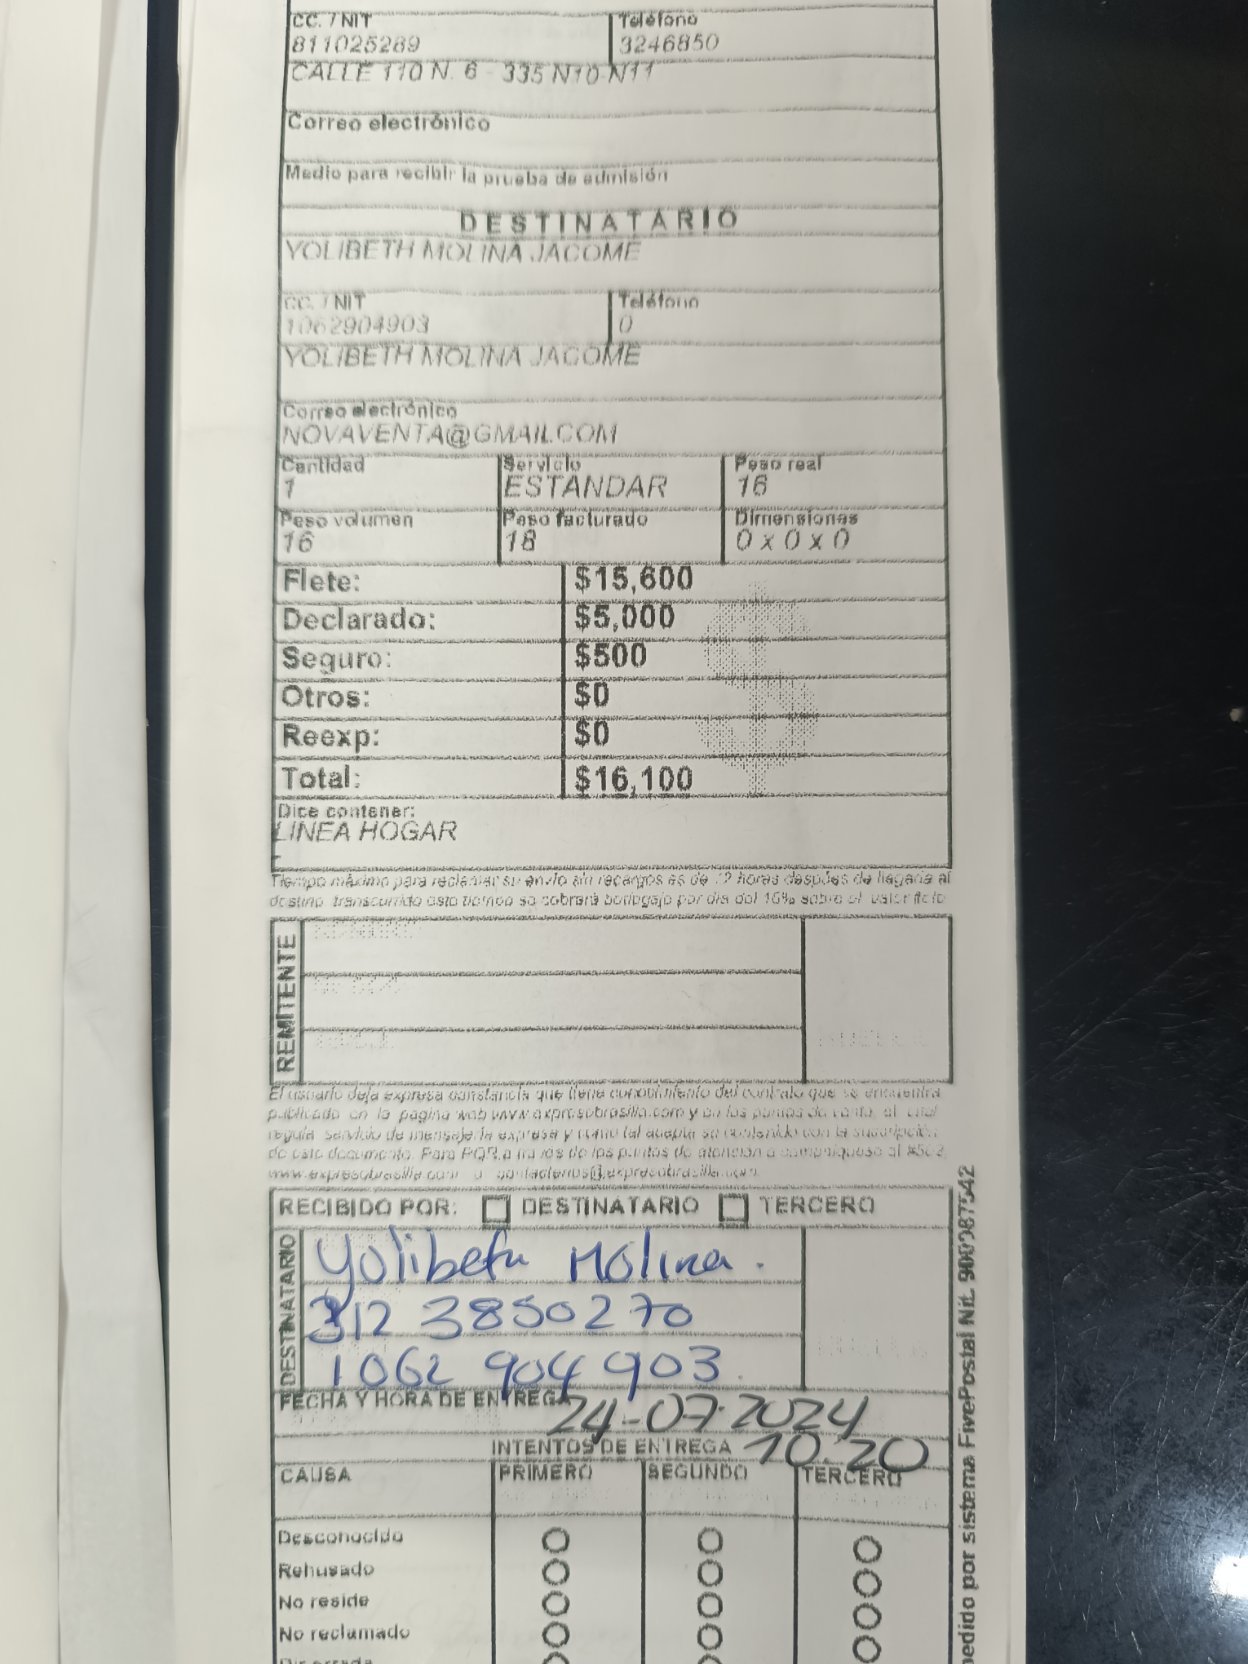 CC. / NIT Teléfono
811025289 3246850
CALLE 110 N. 6 - 335 N10 N11
Correo electrónico
Medio para recibir la prueba de admisión
DESTINATARIO
YOLIBETH MOLINA JACOME
CC. / NIT Teléfono
1062904903 0
YOLIBETH MOLINA JACOME
Correo electrónico
NOVAVENTA@GMAIL.COM
Cantidad Servicio Peso real
1 ESTANDAR 16
Peso volumen Peso facturado Dimensiones
16 18 0 x 0 x 0
Flete: $15,600
Declarado: $5,000
Seguro: $500
Otros: $0
Reexp: $0
Total: $16,100
Dice contener:
LINEA HOGAR
-
Tiempo máximo para reclamar su envío sin recargos es de 72 horas después de llegada al
destino, transcurrido este tiempo se cobrará bodegaje por día del 16% sobre el valor flete
REMITENTE
El usuario deja expresa constancia que tiene conocimiento del contrato que se encuentra
publicado en la página web www.expresobrasilia.com y en los puntos de venta, el cual
regula servicio de mensajería expresa y como tal acepta su contenido con la suscripción
de este documento. Para PQR a través de los puntos de atención o comuníquese al
www.expresobrasilia.com o contactenos@expresobrasilia.com
RECIBIDO POR: DESTINATARIO TERCERO
DESTINATARIO
Yolibeth Molina.
312 3850270
1062 904 903
FECHA Y HORA DE ENTREGA
24-07-2024
INTENTOS DE ENTREGA 10:20
CAUSA PRIMERO SEGUNDO TERCERO
Desconocido
Rehusado
No reside
No reclamado
Dir errada
pedido por sistema FivePostal Nit. 900087542